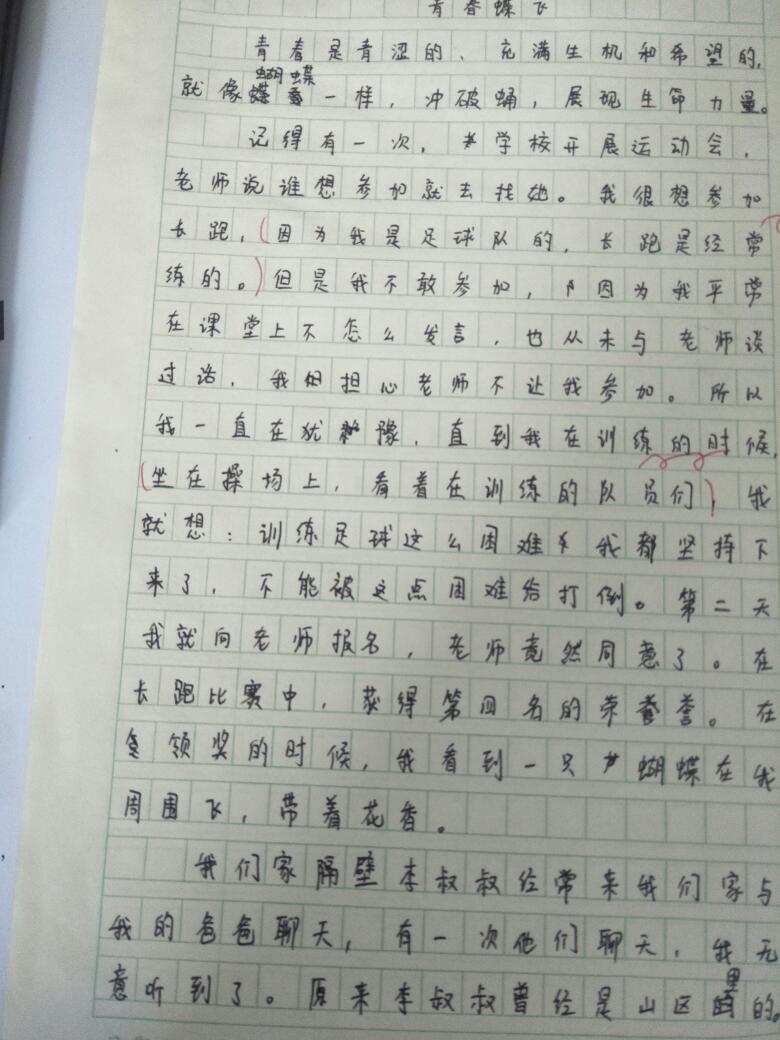 青春蝶飞
青春是青涩的、充满生机和希望的,
就像蝴蝶一样，冲破蛹，展现生命力量。
记得有一次，学校开展运动会，
老师说谁想参加就去找她。我很想参加
长跑，(因为我是足球队的，长跑是经常
练的。)但是我不敢参加，因为我平常
在课堂上不怎么发言，也从未与老师谈
过话，我担心老师不让我参加。所以
我一直在犹豫，直到我在训练的时候,
(坐在操场上，看着在训练的队员们)，我
就想：训练足球这么困难我都坚持下
来了，不能被这点困难给打倒。第二天
我就向老师报名，老师竟然同意了。在
长跑比赛中，获得第四名的荣誉。在
领奖的时候，我看到一只蝴蝶在我
周围飞，带着花香。
我们家隔壁李叔叔经常来我们家与
我的爸爸聊天，有一次他们聊天，我无
意听到了。原来李叔叔曾经是山区里的。